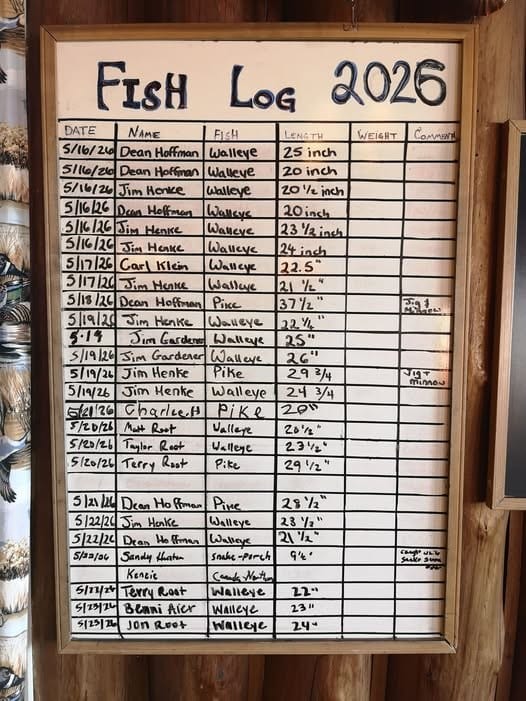 FISH LOG 2026
DATE NAME FISH LENGTH WEIGHT COMMENT
5/16/26 Dean Hoffman Walleye 25 inch
5/16/26 Dean Hoffman Walleye 20 inch
5/16/26 Jim Henke Walleye 20 1/2 inch
5/16/26 Dean Hoffman Walleye 20 inch
5/16/26 Jim Henke Walleye 23 1/2 inch
5/16/26 Jim Henke Walleye 24 inch
5/17/26 Carl Klein Walleye 22.5"
5/17/26 Jim Henke Walleye 21 1/2"
5/18/26 Dean Hoffman Pike 37 1/2" Jig & Minnow
5/19/26 Jim Henke Walleye 22 1/4"
5-19 Jim Gardener Walleye 25"
5/19/26 Jim Gardener Walleye 26"
5/19/26 Jim Henke Pike 29 3/4 Jig + minnow
5/19/26 Jim Henke Walleye 24 3/4
5/21/26 Charlee.H PiKE 20"
5/20/26 Matt Root Walleye 20 1/2"
5/20/26 Taylor Root Walleye 23 1/2"
5/20/26 Terry Root Pike 29 1/2"
5/21/26 Dean Hoffman Pike 28 1/2"
5/22/26 Jim Henke Walleye 23 1/2"
5/22/26 Dean Hoffman Walleye 21 1/2"
5/22/26 Sandy Hunten snake-perch 9 1/2" caught
Kenzie
Terry Root Walleye 22"
5/23/26 Benni Walleye 23"
5/23/26 Jon Root Walleye 24"